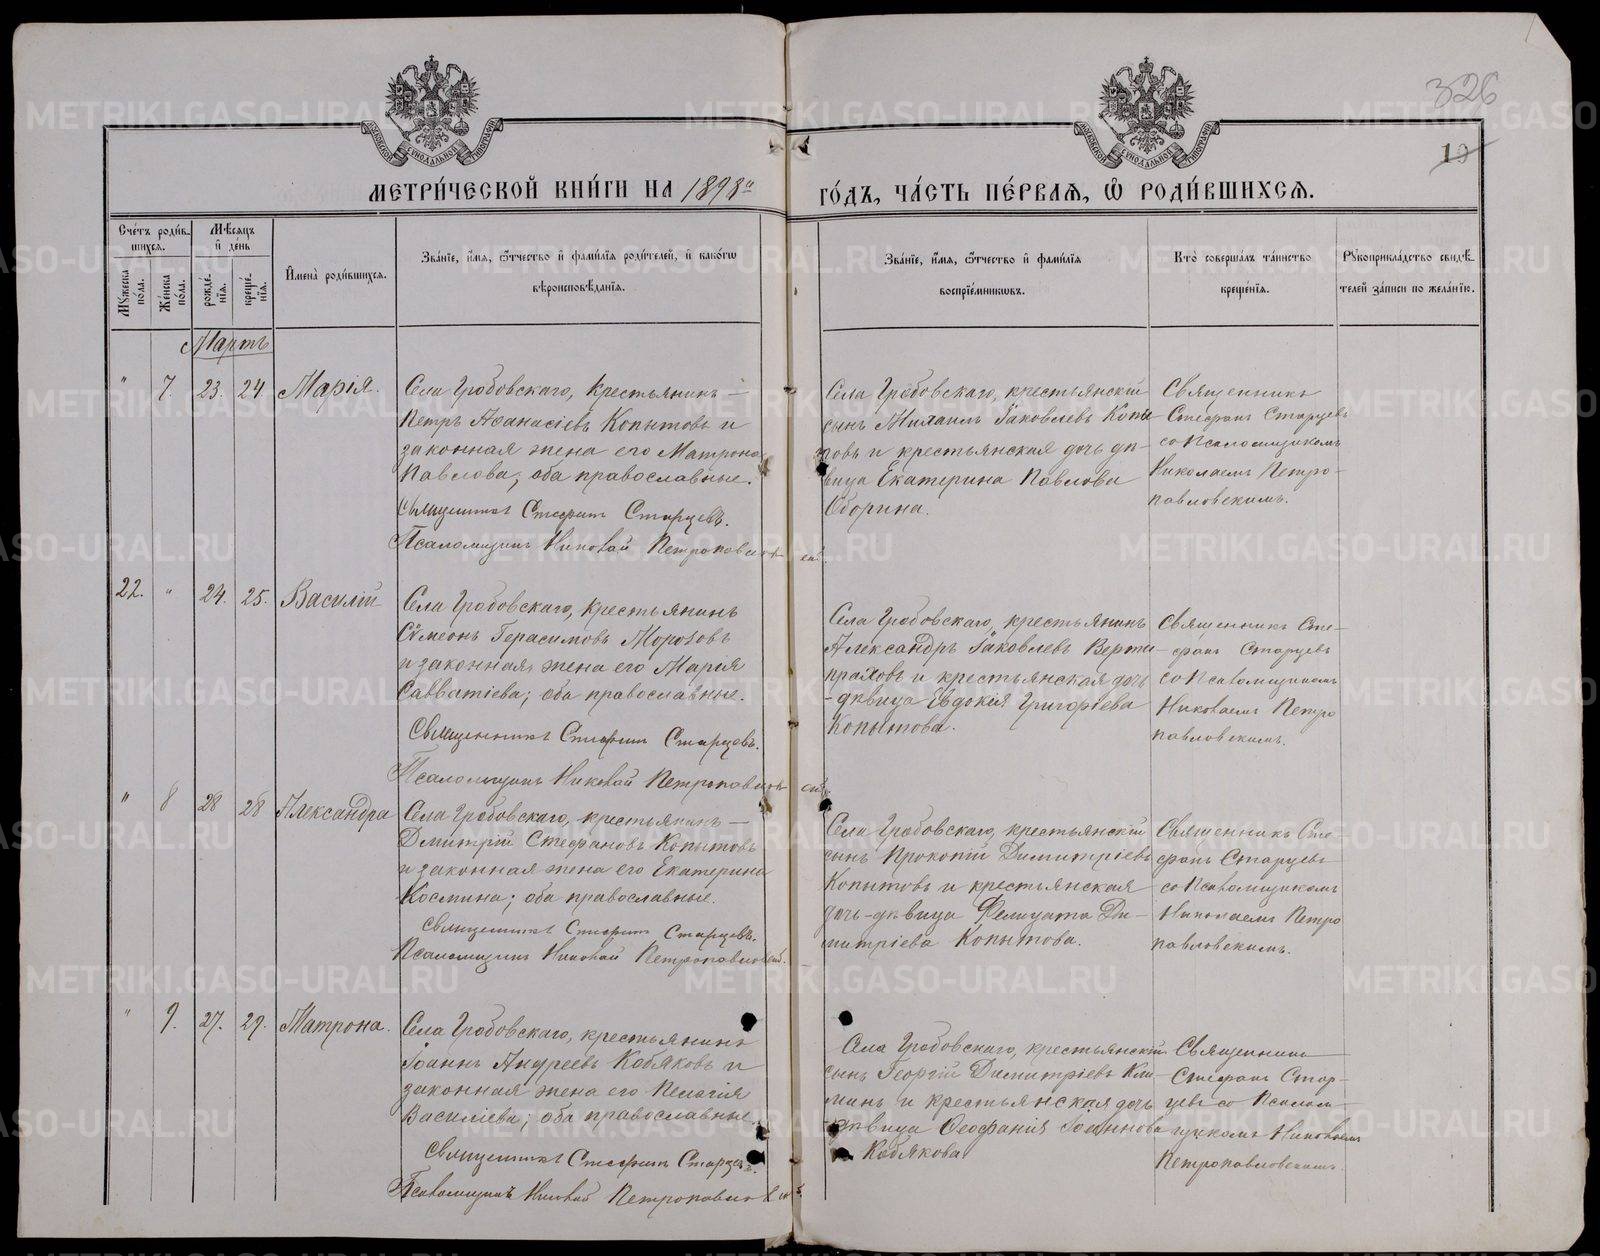 326
19
МОСКОВСКОЙ СѴНОДАЛЬНОЙ ТИПОГРАФІИ
МОСКОВСКОЙ СѴНОДАЛЬНОЙ ТИПОГРАФІИ
МЕТРИ́ЧЕСКОЙ КНИ́ГИ НА 1898й ГО́ДЪ, ЧА́СТЬ ПЕ́РВАѦ, Ѡ҆ РОДИ́ВШИХСѦ.
Сче́тъ роди́в-
шихсѧ.
Мꙋжеска по́ла.
Же́нска по́ла.
Мѣ́сѧцъ и҆ де́нь
рожде́-нїѧ.
креще́-нїѧ.
И҆мена̀ роди́вшихсѧ.
Зва́нїе, и҆́мѧ, ѻ҆́тчество и҆ фами́лїѧ роди́телей, и҆ како́гѡ
вѣроисповѣ́данїѧ.
Зва́нїе, и҆́мѧ, ѻ҆́тчество и҆ фами́лїѧ
воспрїе́мникѡвъ.
Кто̀ соверша́лъ та́инство
креще́нїѧ.
Рꙋкоприкла́дство свидѣ́-
телей за́писи по жела́нїю.
Мартъ
" 7. 23. 24. Марія.
Села Гробовскаго, крестьянинъ —
Петръ Аѳанасіевъ Копытовъ и
законная жена его Матрона
Павлова; оба православные.
Священникъ Стефанъ Старцевъ.
Псаломщикъ Николай Петропавловскій.
Села Гробовскаго, крестьянскій
сынъ Михаилъ Іаковлевъ Копы
товъ и крестьянская дочь дѣ-
вица Екатерина Павлова
Оборина.
Священникъ
Стефанъ Старцевъ
со Псаломщикомъ
Николаемъ Петро-
павловскимъ.
22. " 24. 25. Василій
Села Гробовскаго, крестьянинъ
Сѵмеонъ Герасимовъ Морозовъ
и законная жена его Марія
Савватіева; оба православные.
Священникъ Стефанъ Старцевъ.
Псаломщикъ Николай Петропавловскій.
Села Гробовскаго, крестьянинъ
Александръ Іаковлевъ Верти-
праховъ и крестьянская дочь
-дѣвица Евдокія Григоріева
Копытова.
Священникъ Сте-
фанъ Старцевъ
со Псаломщикомъ
Николаемъ Петро
павловскимъ.
" 8 28 28 Александра
Села Гробовскаго, крестьянинъ —
Димитрій Стефановъ Копытовъ
и законная жена его Екатерина
Космина; оба православные.
Священникъ Стефанъ Старцевъ.
Псаломщикъ Николай Петропавловскій.
Села Гробовскаго, крестьянскій
сынъ Прокопій Димитріевъ
Копытовъ и крестьянская
дочь-дѣвица Фелицата Ди-
митріева Копытова.
Священникъ Сте-
фанъ Старцевъ
со Псаломщикомъ
Николаемъ Петро
павловскимъ.
" 9. 27. 29. Матрона.
Села Гробовскаго, крестьянинъ
Іоаннъ Андреевъ Кобяковъ и
законная жена его Пелагія
Василіева; оба православные.
Священникъ Стефанъ Старцевъ.
Псаломщикъ Николай Петропавловскій.
Села Гробовскаго, крестьянскій
сынъ Георгій Димитріевъ
и крестьянская дочь
дѣвица Ѳеофанія Іоаннова
Кобякова
Священникъ
Стефанъ Стар-
цевъ со Псалом-
щикомъ Николаемъ
Петропавловскимъ.
METRIKI.GASO-URAL.RU